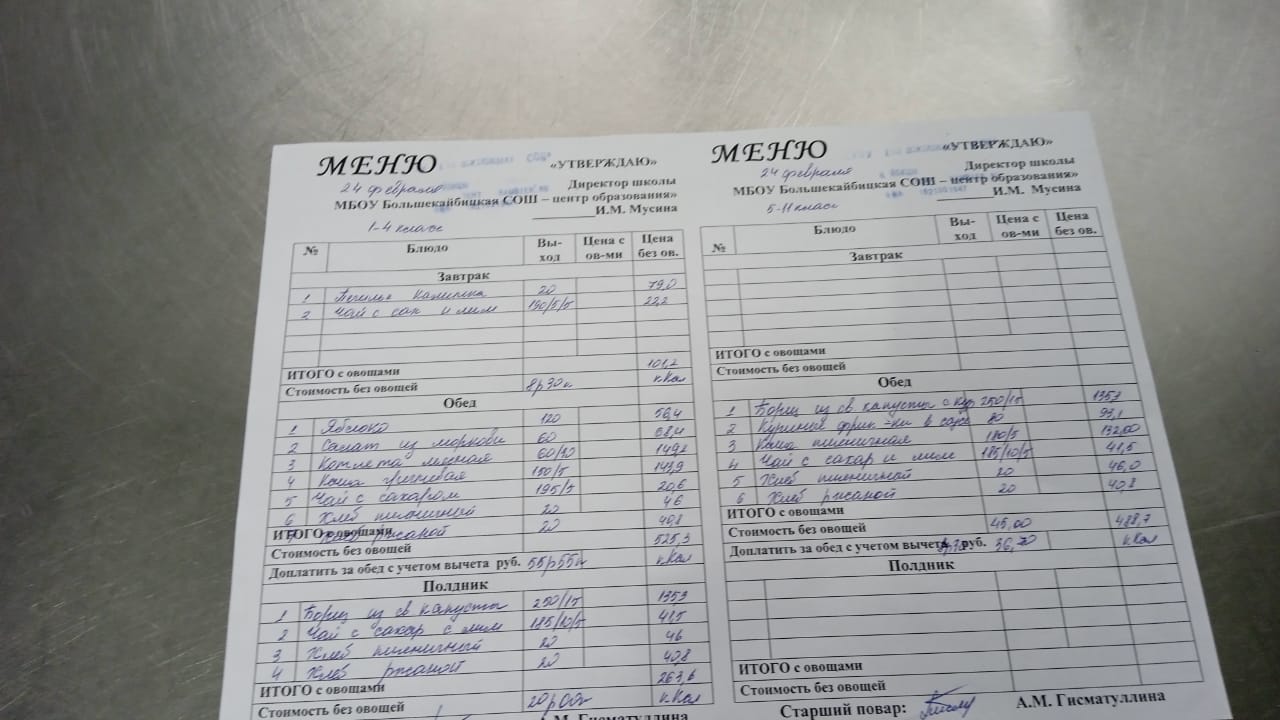 МЕНЮ «УТВЕРЖДАЮ»
24 февраля Директор школы
МБОУ Большекайбицкая СОШ – центр образования»
И.М. Мусина
1-4 класс
№ Блюдо Вы-ход Цена с ов-ми Цена без ов.
Завтрак
1 Печенье 20 79,0
2 Чай с сах и лим 190/5/5 22,2
ИТОГО с овощами 101,2
Стоимость без овощей 8р30к кКал
Обед
1 Яблоко 120 56,4
2 Салат из моркови 60 68,4
3 Котлета мясная 60/30 149,2
4 Каша гречневая 150/5 143,9
5 Чай с сахаром 195/5 20,6
6 Хлеб пшеничный 20 46
7 Хлеб ржаной 20 40,8
ИТОГО с овощами 525,3
Стоимость без овощей
Доплатить за обед с учетом вычета руб. 55р55к кКал
Полдник
1 Борщ из св капусты 250/15 135,1
2 Чай с сахар с лим 185/10/5 41,5
3 Хлеб пшеничный 20 46
4 Хлеб ржаной 20 40,8
ИТОГО с овощами 263,6
Стоимость без овощей 20р00к кКал
А.М. Гисматуллина
МЕНЮ «УТВЕРЖДАЮ»
24 февраля Директор школы
МБОУ Большекайбицкая СОШ – центр образования»
И.М. Мусина
5-11 класс
№ Блюдо Вы-ход Цена с ов-ми Цена без ов.
Завтрак
ИТОГО с овощами
Стоимость без овощей
Обед
1 Борщ из св капусты с кур 250/15 135,1
2 Куриные фрик-ки в соусе 80 93,1
3 Каша пшеничная 180/5 132,00
4 Чай с сахар и лим 185/10/5 41,5
5 Хлеб пшеничный 20 46,0
6 Хлеб ржаной 20 40,8
ИТОГО с овощами
Стоимость без овощей 45,00 488,7
Доплатить за обед с учетом вычета руб. 36,70 кКал
Полдник
ИТОГО с овощами
Стоимость без овощей
Старший повар: А.М. Гисматуллина